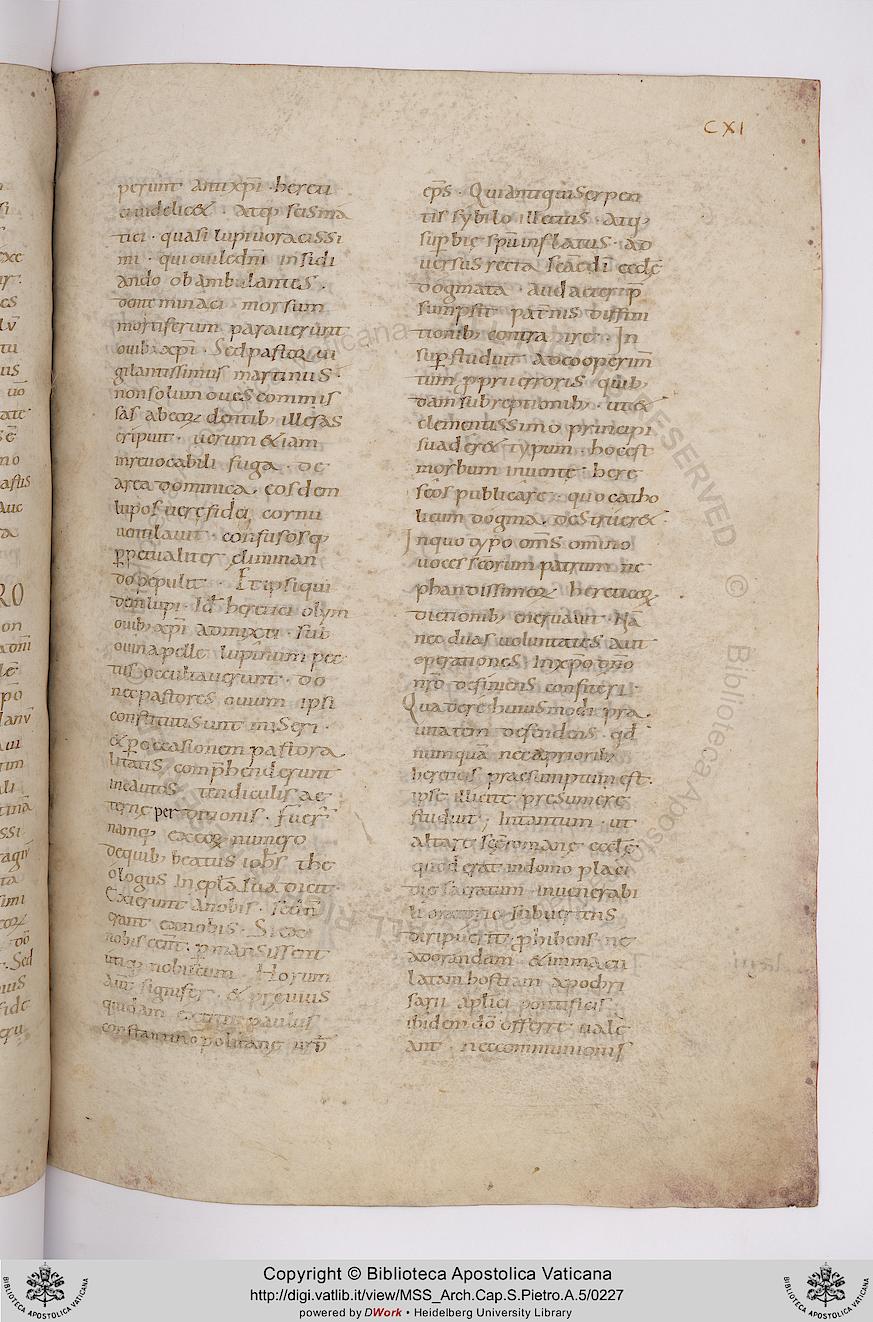 CXI
perunt antixp̄i · hereti
ci uidelicet · atq; scisma
tici · quasi lupi uoracissi
mi · qui ouile dn̄i insidi
ando obambulantes ·
dente minaci morsum
mortiferum parauerunt
ouib; xp̄i · Sed pastor ui
gilantissimus martinus ·
non solum oues commis
sas ab eoꝝ dentib; illesas
eripuit · uerum etiam
inreuocabili fuga · de
area dominica · eosdem
lupos uere fidei cornu
uentilauit · confusosq;
ꝑpetualiter eliminan
do pepulit · Et ipsi qui
dem lupi · Id ē heretici olym
ouib; xp̄i admixti · sub
ouina pelle lupinum pec
tus occultauerunt · do
nec pastores ouium ipsi
constituti sunt miseri ·
& ꝑ occasionem pastora
litatis comp̄henderunt
incautos tendiculis ae
terne perditionis · Fuer̄
namq; ex eoꝝ numero
de quib; beatus ioh̄s the
ologus In epl̄a sua dicit ·
Exierunt a nobis · sed n̄
erant ex nobis · Si ex
nobis eēnt · ꝑmansissent
utiq; nobiscum · Horum
aūt signifer · & preuius
quidam extitit paulus
constantinopolitane urb̄
ep̄s · Qui antiqui serpen
tis sybilo illectus · atq;
suꝑbie sp̄u inflatus · ad
uersus recta sc̄ae dī eccl̄e
dogmata · audacter p̄
sumpsit patrus diffini
tionib; contra ire · In
suꝑ studuit ad cooperim̄
tum ꝓprii erroris quib;
dam subreptionib; · ut &
clementissimo principi
suaderet typum · hoc est
morbum inuente here
seos publicare · quo catho
licum dogma · destrueret ·
In quo typo om̄s om̄ino
uoces sc̄orum patrum ne
phandissimoꝝ hereticoꝝ
dictionib; eneruauit · Nā
nec duas uoluntates aut
operationes In xp̄o dn̄o
nr̄o definiens confiteri ·
Qua de re huiusmodi pra
uitatem defendens · qd̄
numquā nec a priorib;
hereticis praesumptum est ·
ipse illicite presumere
studuit ; Intantum · ut
altare sc̄e romane eccl̄e
quod erat in domo placi
die sacratum in uenerabi
li oratorio subuertens
diripuerit · ꝓhibens · ne
adorandam & immacu
latam hostiam apochri
sarii aplici pontificis
ibidem dō offerre uale
ant · nec communionis
Copyright © Biblioteca Apostolica Vaticana
http://digi.vatlib.it/view/MSS_Arch.Cap.S.Pietro.A.5/0227
powered by DWork • Heidelberg University Library